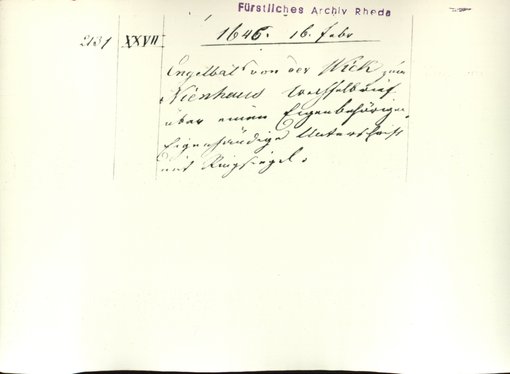 Fürstliches Archiv Rheda
2131 XXVII 1646. 16. Febr
Engelbat von der Wiek zum
Nienhaus Wechselbrief
über einen Eigenbehörigen
Eigenhändige Unterschrift
mit Ringsiegel.